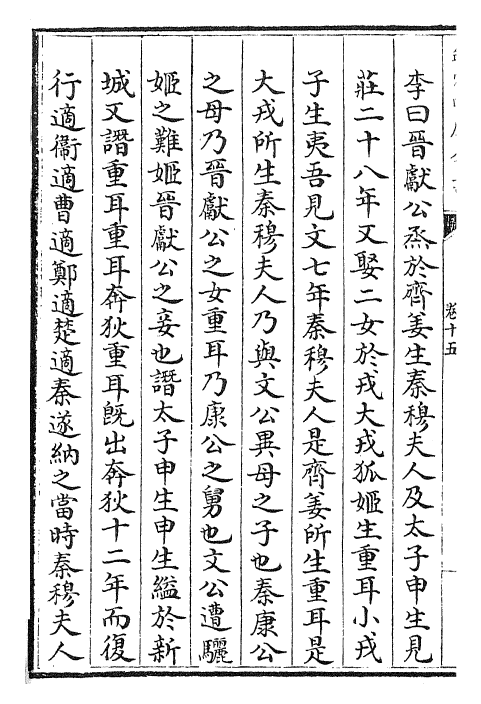 卷十五
李曰晉獻公烝於齊姜生秦穆夫人及太子申生見
莊二十八年又娶二女於戎大戎狐姬生重耳小戎
子生夷吾見文七年秦穆夫人是齊姜所生重耳是
大戎所生秦穆夫人乃與文公異母之子也秦康公
之母乃晉獻公之女重耳乃康公之舅也文公遭驪
姬之難姬晉獻公之妾也譖太子申生申生縊於新
城又譖重耳重耳奔狄重耳旣出奔狄十二年而復
行適衞適曹適鄭適楚適秦遂納之當時秦穆夫人